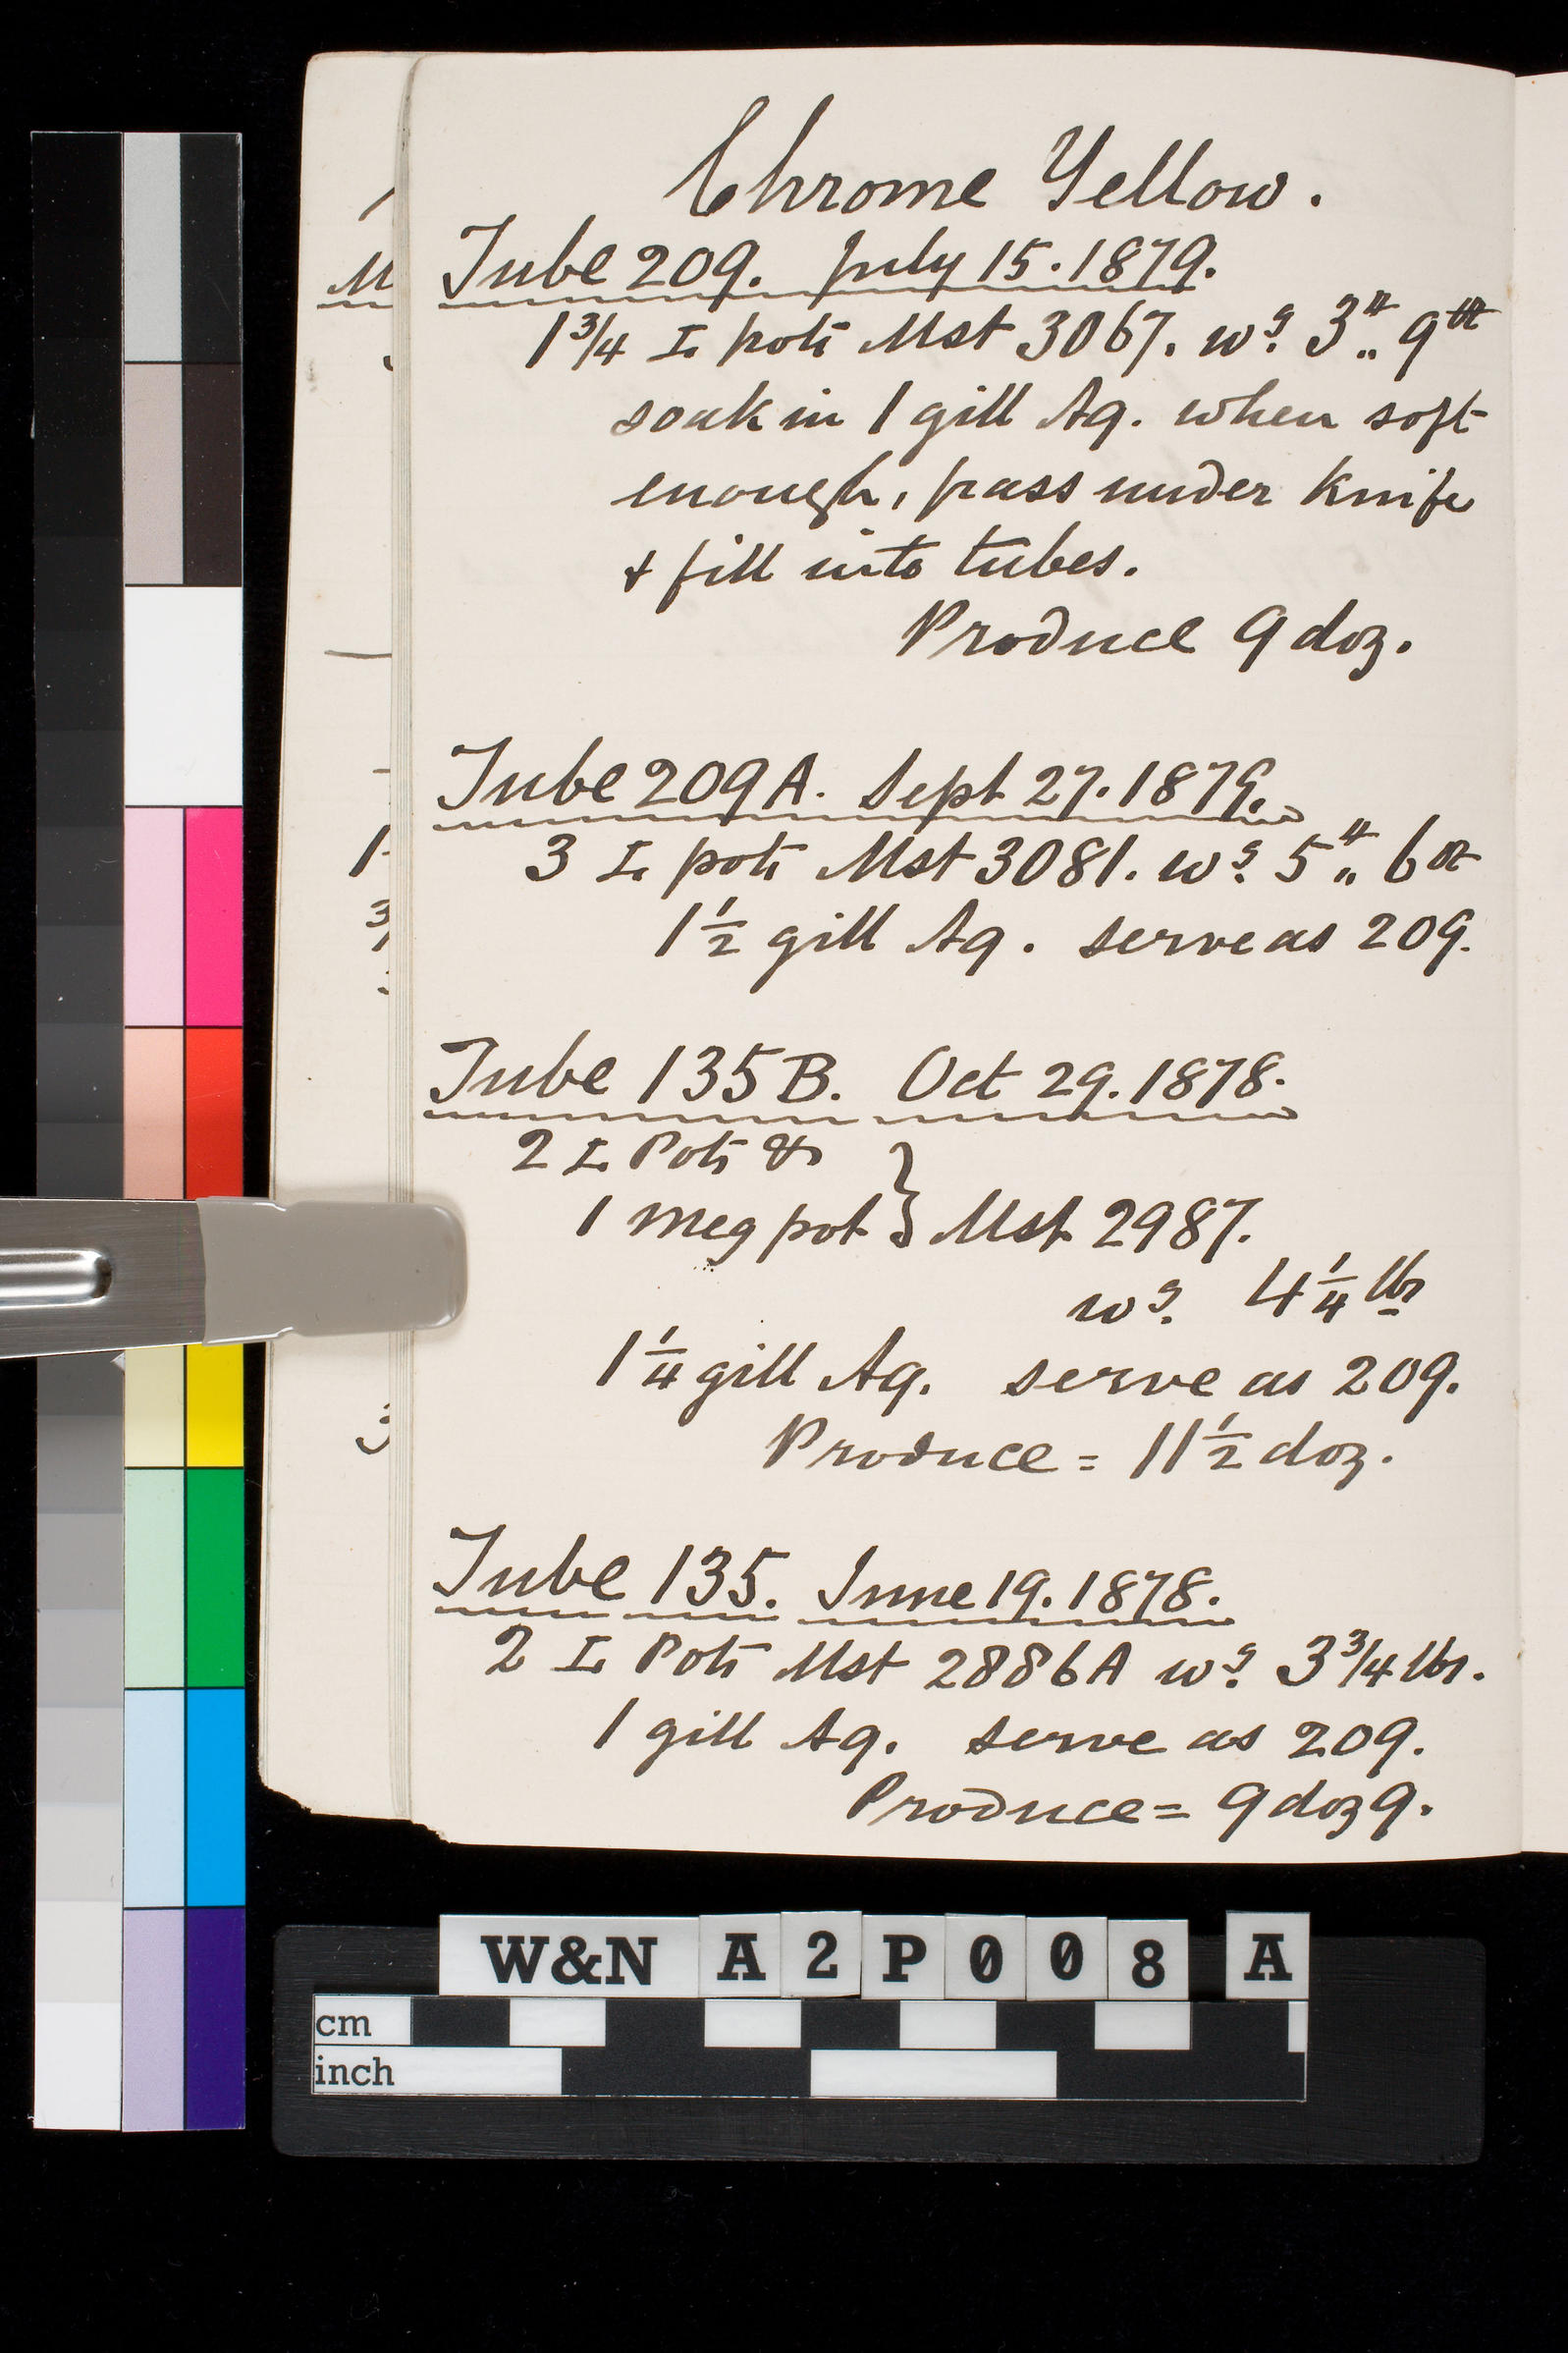 Chrome Yellow.
Tube 209. July 15. 1879.
1 3/4 L pots Mst 3067. wg. 3 # „ 9 oz
soak in 1 gill Aq. when soft
enough, pass under knife
+ fill into tubes.
Produce 9 doz.
Tube 209A. Sept 27. 1879.
3 L pots Mst 3081. wg. 5 # „ 6 oz
1 1/2 gill Aq. serve as 209.
Tube 135B. Oct 29. 1878.
2 L Pots &
1 meg pot } Mst 2987.
wg. 4 1/4 lbs
1 1/4 gill Aq. serve as 209.
Produce = 11 1/2 doz.
Tube 135. June 19. 1878.
2 L Pots Mst 2886A wg. 3 3/4 lbs.
1 gill Aq. serve as 209.
Produce = 9 doz 9.
W&N A2P008 A
cm
inch